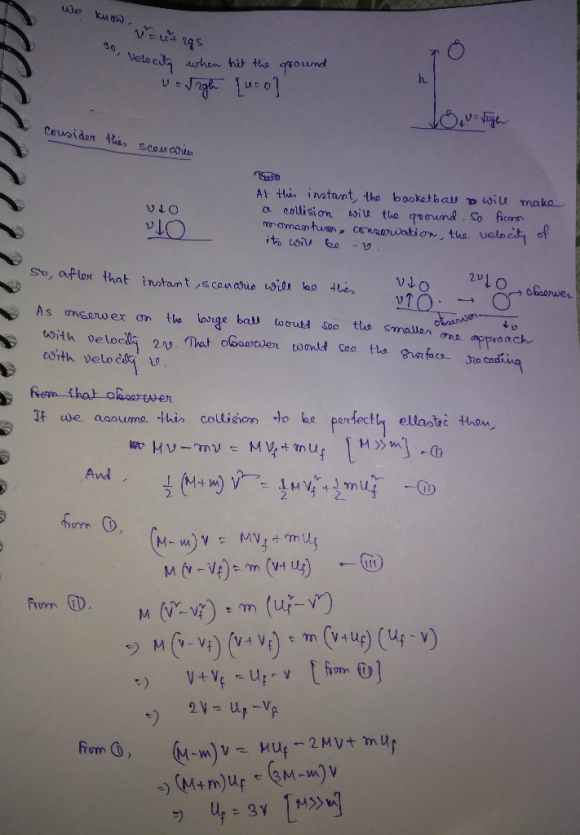 We know,
v² = u² + 2gs
so, velocity when hit the ground
v = √2gh [u=0]
h
v = √2gh
Consider this scenario
v↓
v↓
At this instant, the basketball will make
a collision will the ground. So from
momentum, conservation, the velocity of
its will be -v.
So, after that instant, scenario will be this
v↓
v↑
→
2v↓
→ observer
observer
↓v
As onserver on the large ball would see the smaller one approach
with velocity 2v. That observer would see the surface receding
with velocity v.
From that observer
If we assume this collision to be perfectly ellastic then,
Mv - mv = Mv_f + mu_f [M>>m] - ①
And, ½ (M+m) v² = ½ Mv_f² + ½ mu_f² - ②
from ①,
(M-m) v = Mv_f + mu_f
M (v - v_f) = m (v + u_f) - ③
From ②.
M (v² - v_f²) = m (u_f² - v²)
⇒ M (v - v_f) (v + v_f) = m (v + u_f) (u_f - v)
⇒ v + v_f = u_f - v [from ③]
⇒ 2v = u_f - v_f
From ①, (M-m) v = Mu_f - 2Mv + mu_f
⇒ (M+m) u_f = (3M-m) v
⇒ u_f = 3v [M>>m]